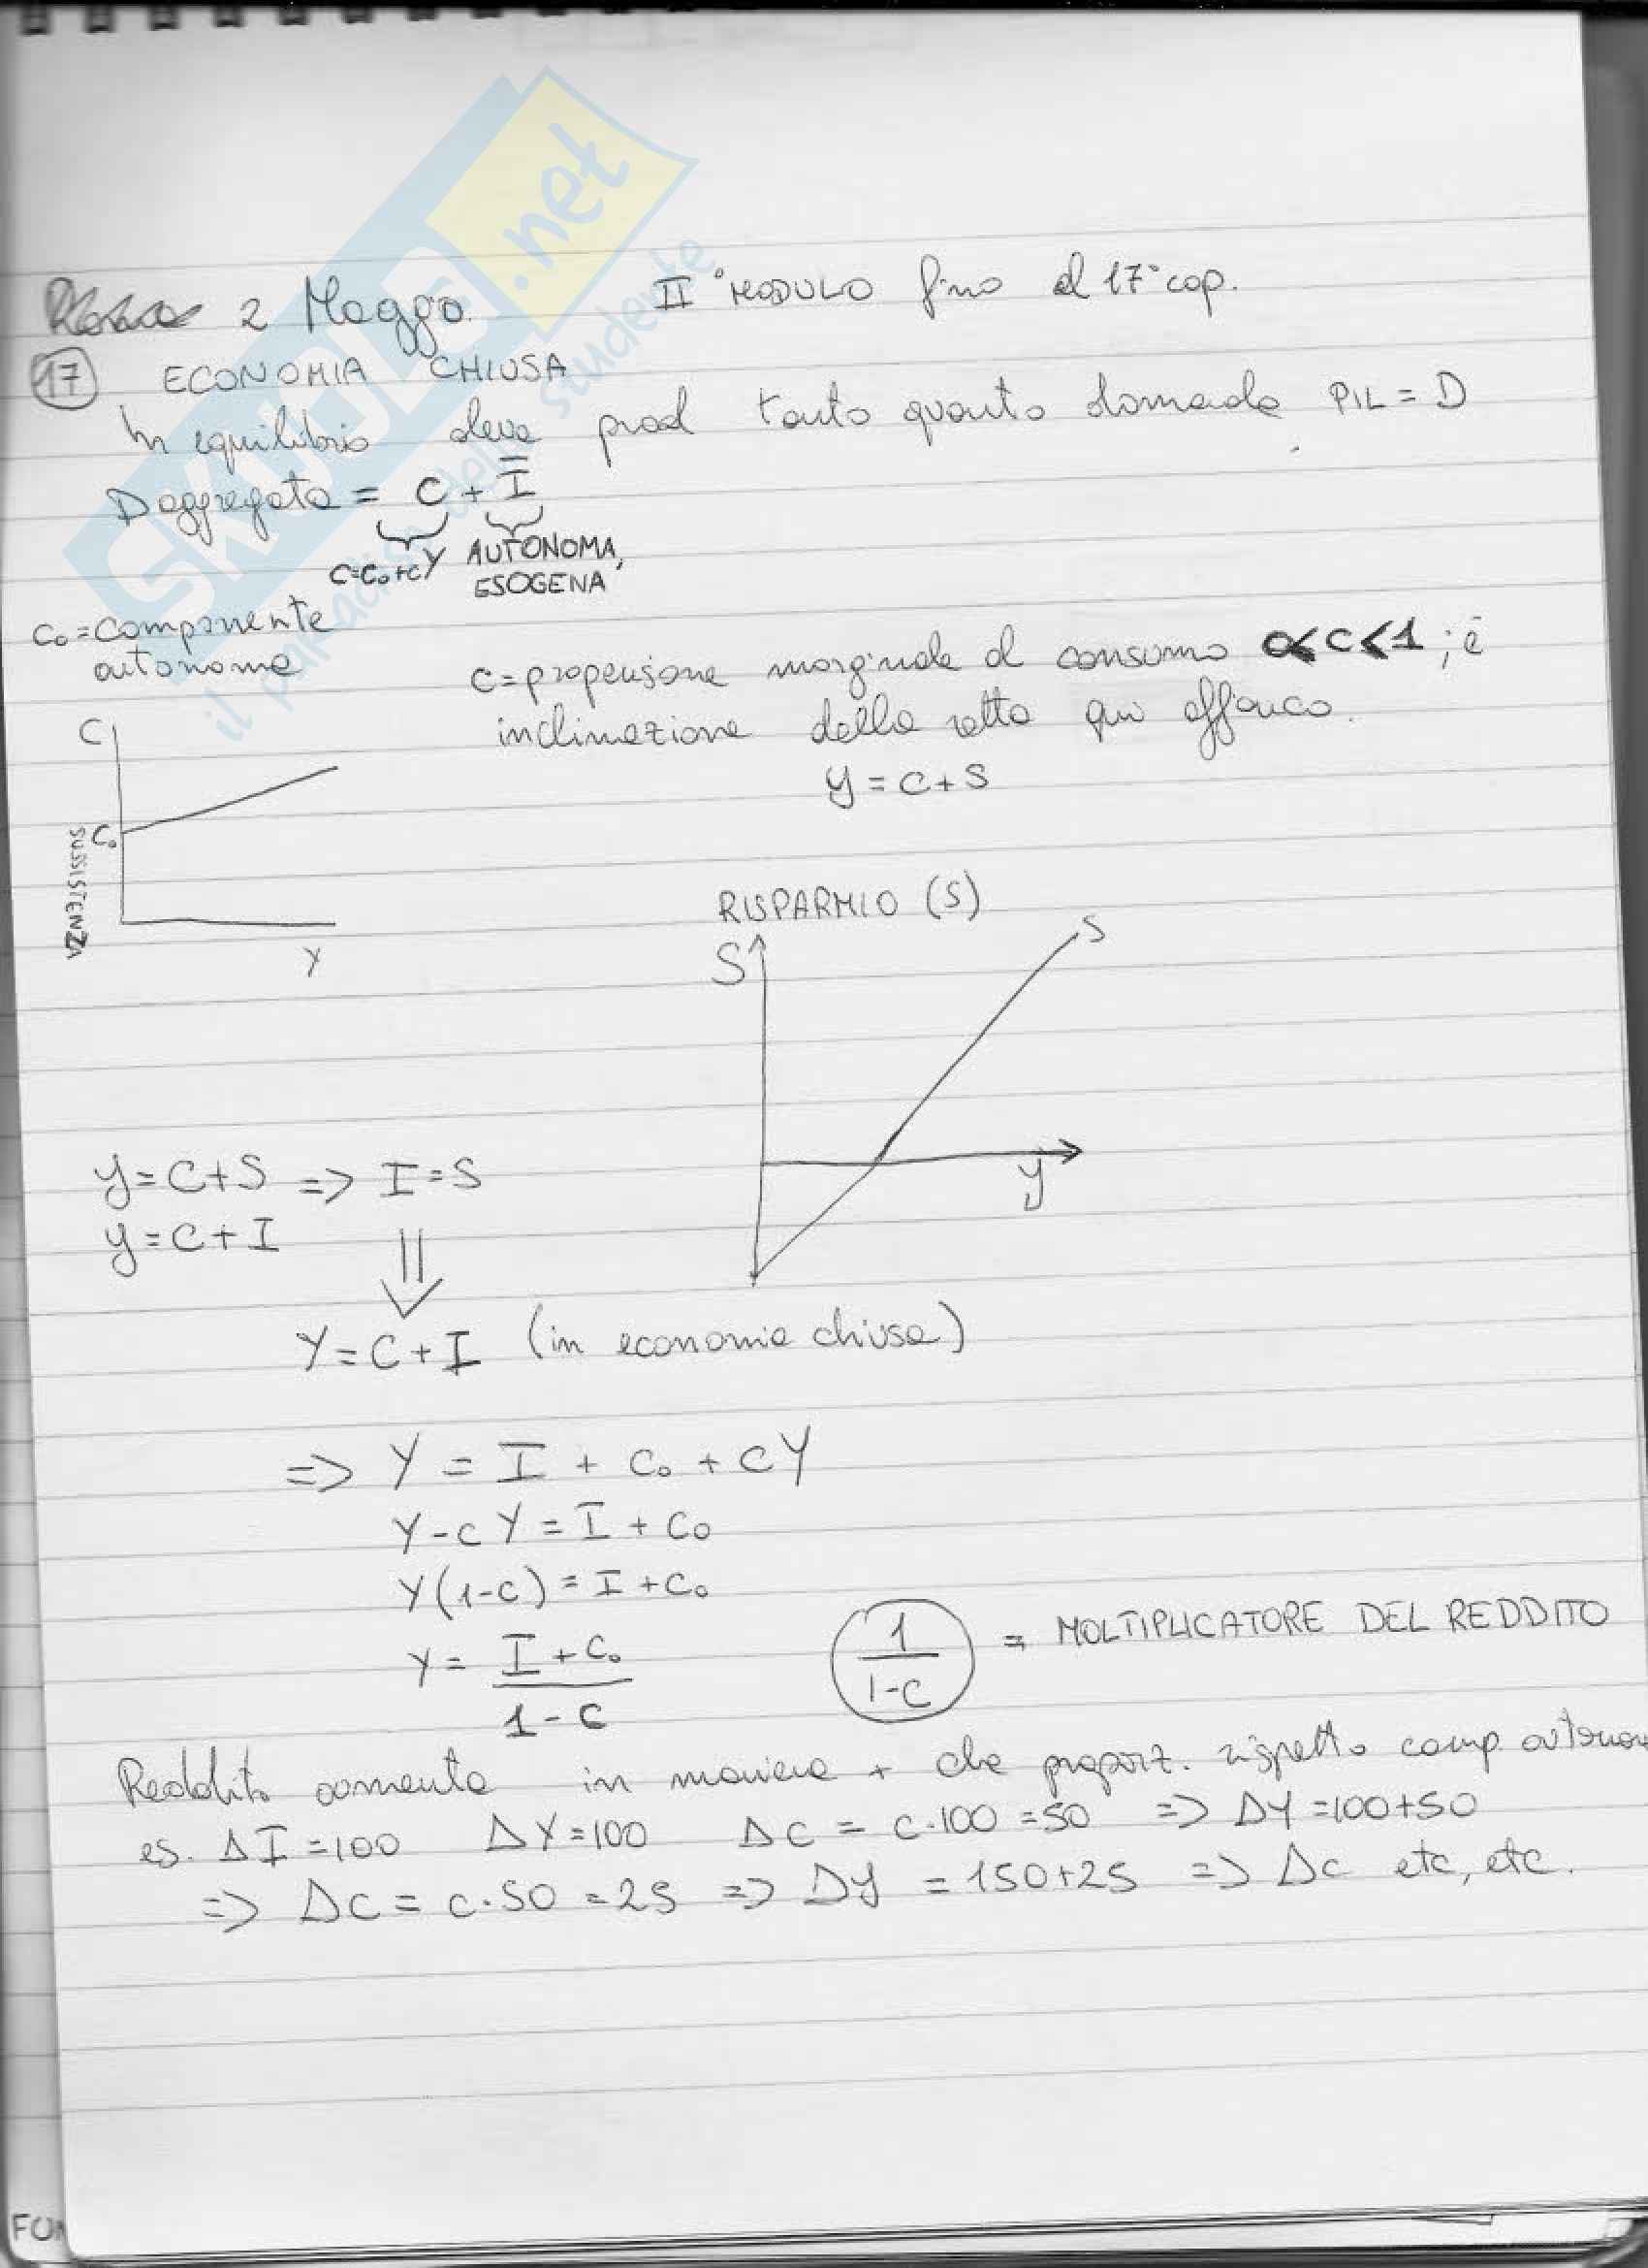 2 Maggio. II° MODULO fino al 17° cap.
17 ECONOMIA CHIUSA
In equilibrio deve prod tanto quanto domanda PIL = D
D aggregata = C + I̅
C=C₀+cY AUTONOMA,
ESOGENA
C₀=componente
autonoma
c=propensione marginale al consumo 0<c<1; è
inclinazione della retta qui affianco.
y = C+S
C
C₀
SUSSISTENZA
Y
RISPARMIO (S)
S
S
y
y=C+S => I=S
y=C+I
Y=C+I (in economia chiusa)
=> Y = I + C₀ + cY
Y-cY = I + C₀
Y(1-c) = I + C₀
Y = I + C₀ / 1-c
1/1-c = MOLTIPLICATORE DEL REDDITO
Reddito aumenta in maniera + che proporz. rispetto comp. autonom
es. ΔI=100 ΔY=100 ΔC = c·100 =50 => ΔY =100+50
=> ΔC = c·50 =25 => Δy = 150+25 => ΔC etc, etc.
FON
SKUOLA.net
il paradiso dello studente